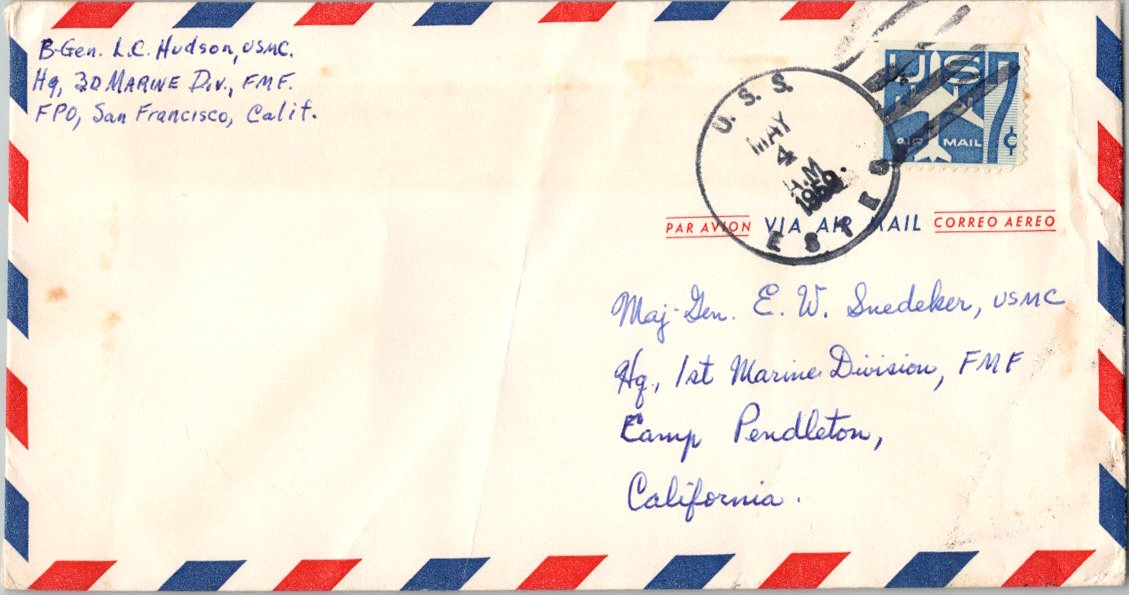 B-Gen. L.C. Hudson, USMC.
Hq, 3D MARINE Div., FMF.
FPO, San Francisco, Calif.
U.S.S. ESTES
MAY
4
A.M.
1959.
US
7¢
AIR MAIL
PAR AVION VIA AIR MAIL CORREO AEREO
Maj-Gen. E. W. Snedeker, USMC
Hq., 1st Marine Division, FMF
Camp Pendleton,
California.